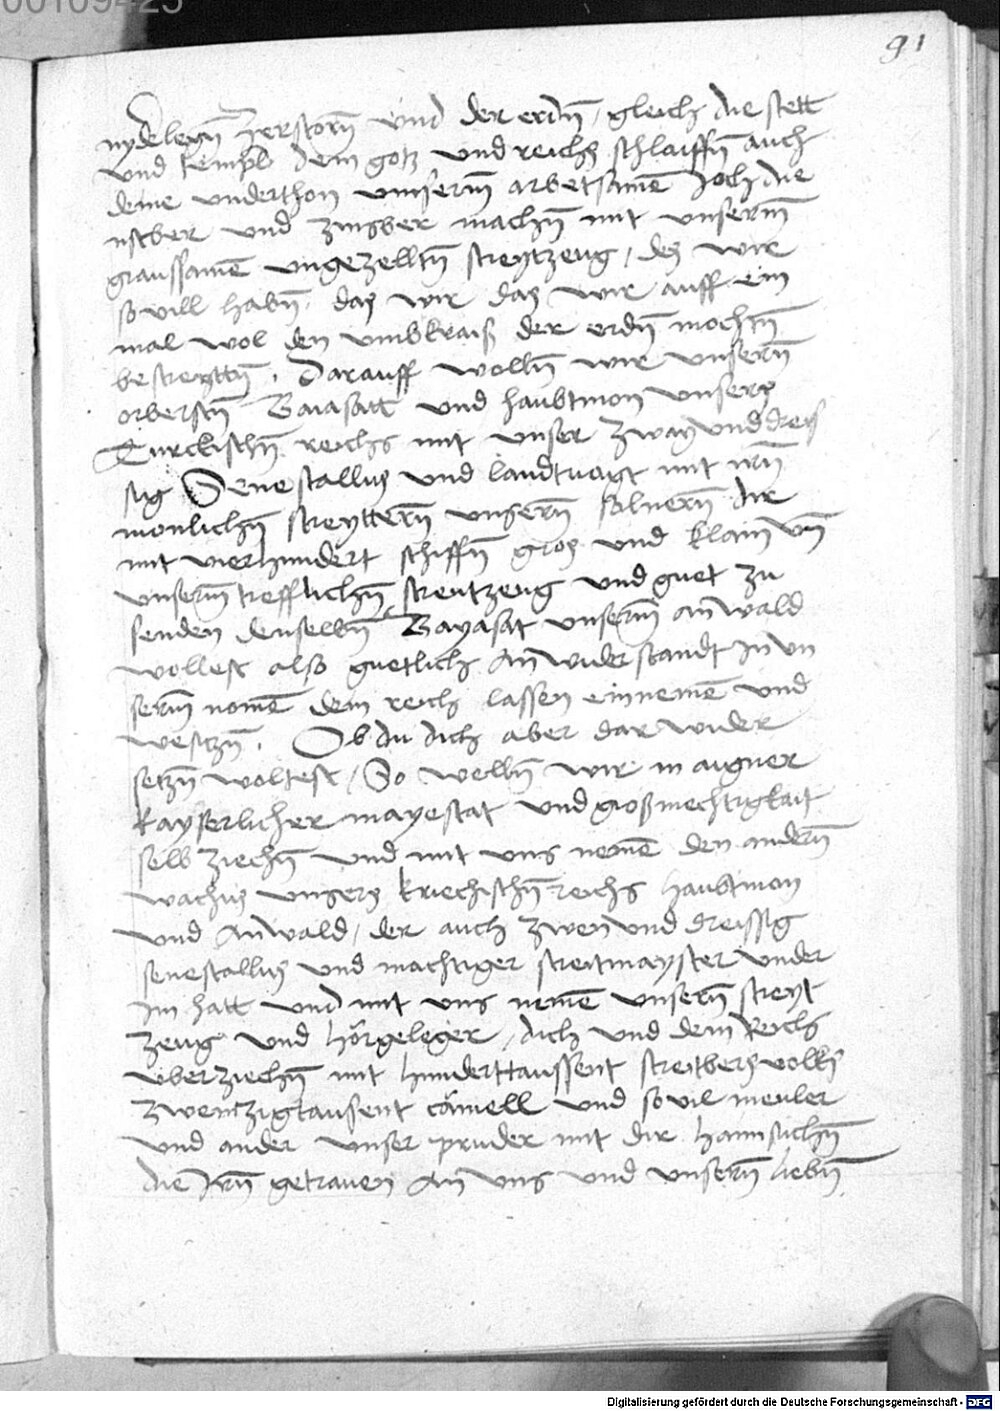 00109425
91
nydelegn̄ zerstorn̄ und der erdn̄, gleich die stett
und templ dem gotz und reichs schlaiffn̄ auch
deine underthon unserm̄ arbetsamē Joch die
und zinsber machn̄ mit unserm̄
graussamē ungezelltn̄ streytzeug, des wir
so vill habn̄, das wir das wir auff ein
mal wol den umbkraiß der erdn̄ mochtn̄
bestreyttn̄. Darauff wolln̄ wir unsern̄
obersten̄ Baiasatt und haubtmon unsers
Turckischn̄ reichs mit unser zway und dreis
sig Senestallus und landtvogt mit irn̄
monlichn̄ streyttern̄ unsern̄ solnern̄ dir
mit vierhundert schiffn̄ gros und klain un̄
unserm̄ trefflichn̄ streitzeug und guet zu
senden denselbn̄ Bayasat unserm̄ anwald
wollest also guetlich an widerstandt In un
serm̄ nomē dem reich lassen einnemē und
besitzn̄. Ob du dich aber dar wider
setzn̄ woltest, So welln̄ wir in aigner
kayserlicher mayestat und großmechtigkait
selb ziechn̄ und mit uns nemē den andern̄
wachus unsers kriechischn̄ reichs haubtmon
und anwald, der auch zwen und dreissig
senestallus und machtiger streitmayster under
im hatt und mit uns nemē unsern̄ streyt
zeug und hörgeleger, dich und dein Reichs
uberziechn̄ mit hunderttaussent streitbers volks
zwentzigtausent cämell und sovil meuler
und ander unser pruder mit dir haimsuchn̄
die Irn̄ getrauen an uns und unsern̄ liebn̄
Digitalisierung gefördert durch die Deutsche Forschungsgemeinschaft - DFG